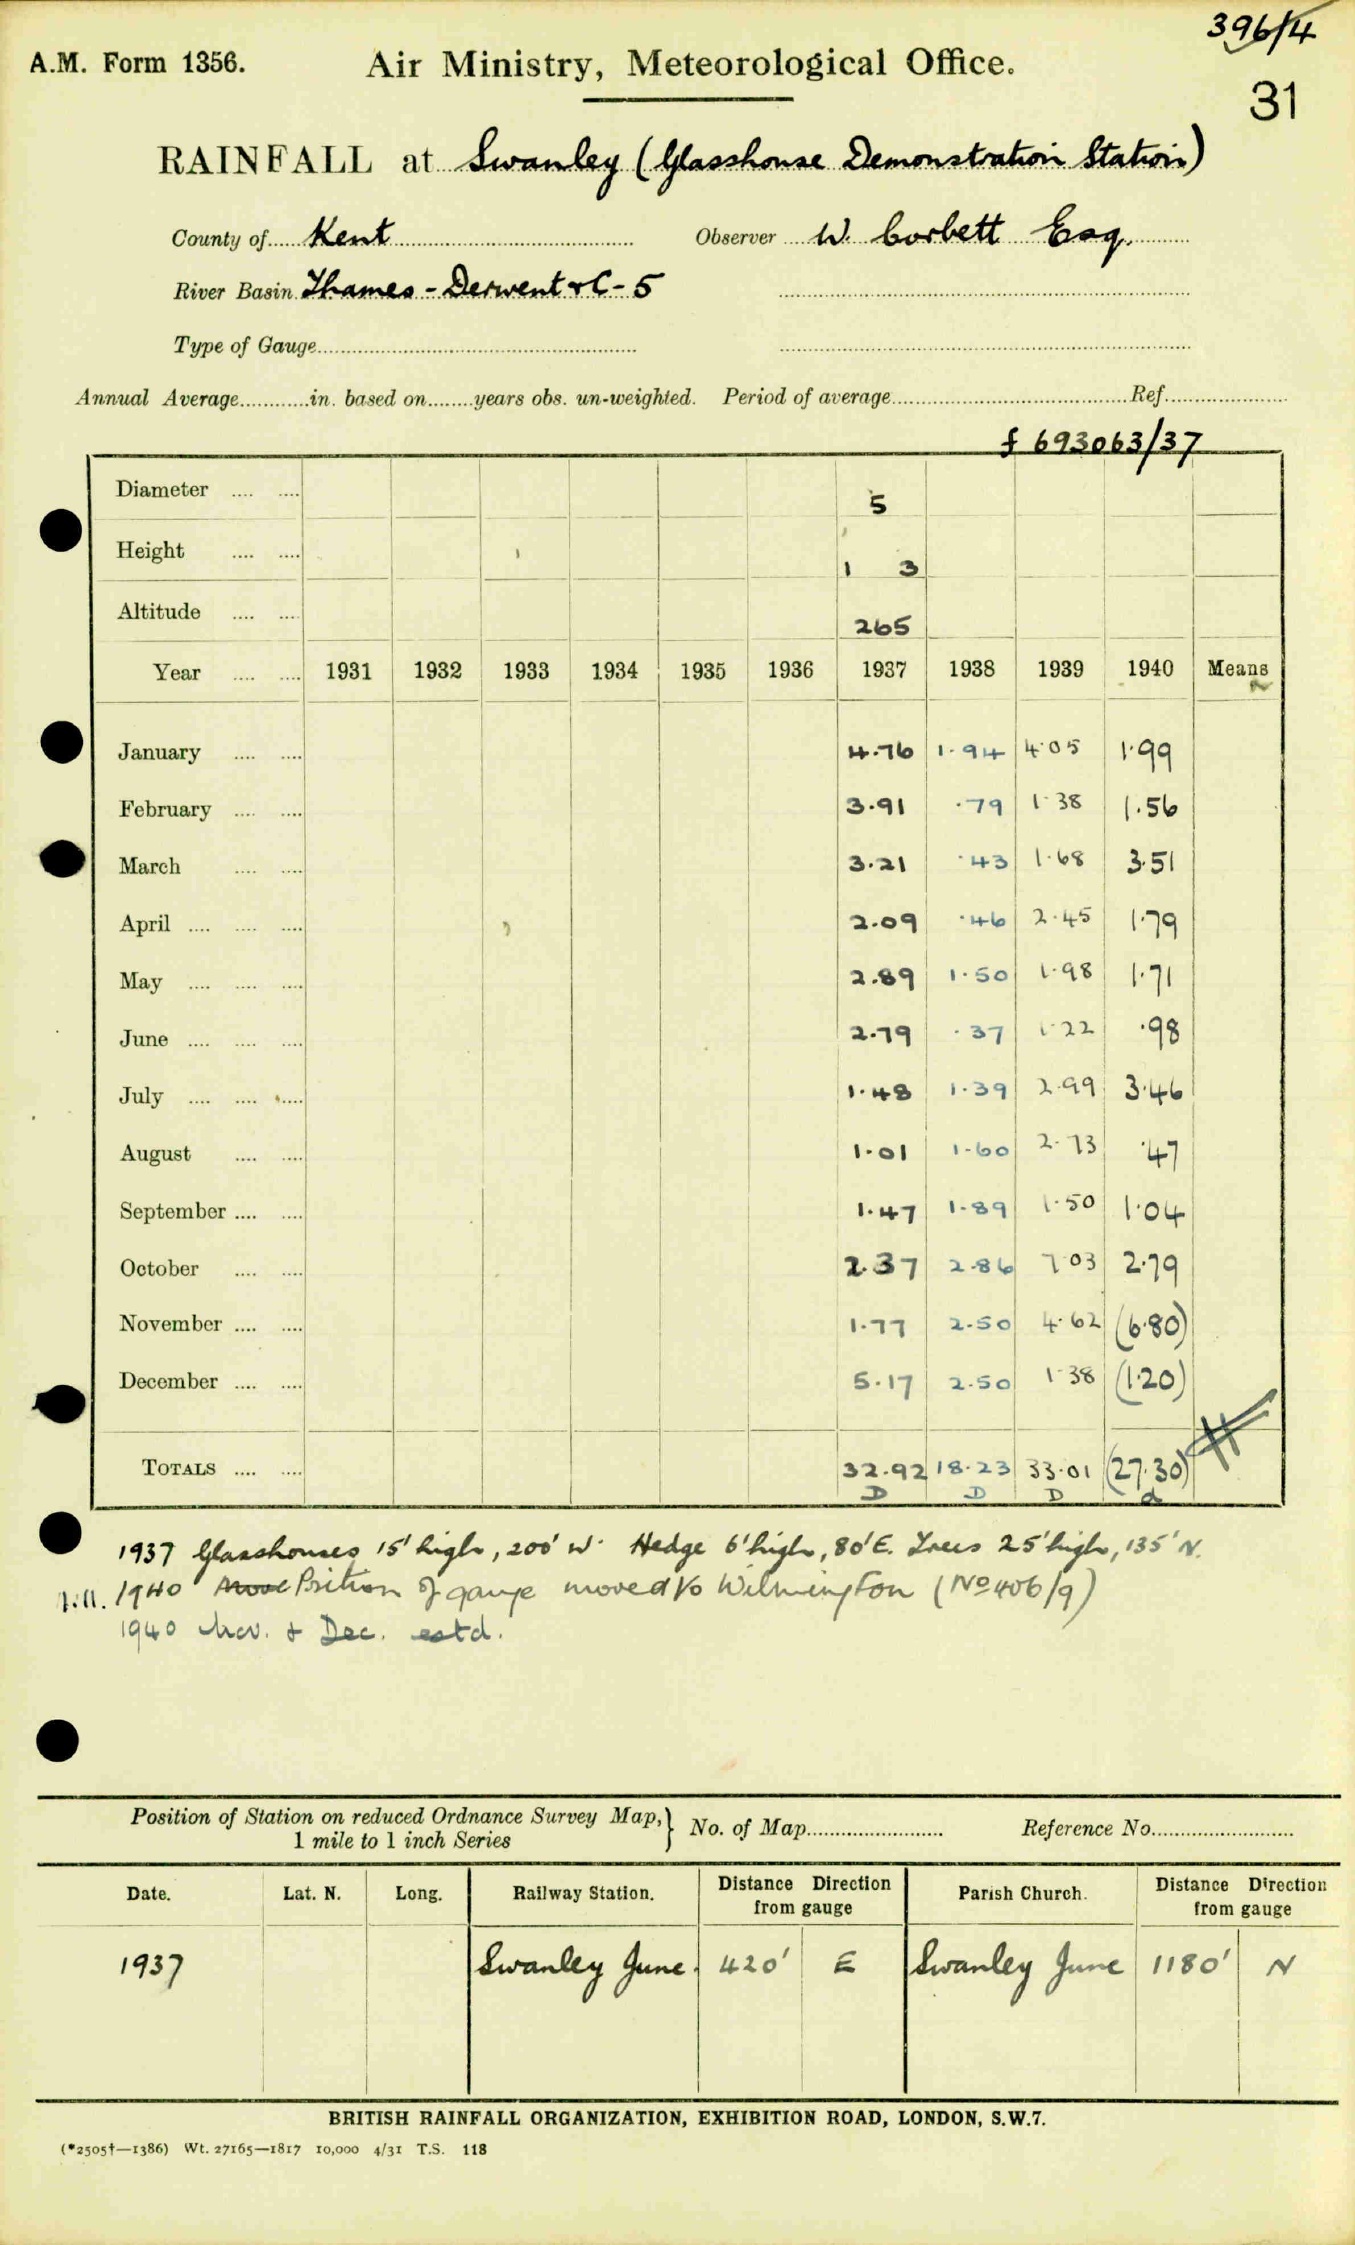 396/4
A.M. Form 1356. Air Ministry, Meteorological Office.
31
RAINFALL at Swanley (Glasshouse Demonstration Station)
County of Kent Observer W. Corbett Esq.
River Basin Thames - Derwent & C - 5
Type of Gauge
Annual Average in. based on years obs. un-weighted. Period of average Ref.
f 693063/37
Diameter 5
Height 1 3
Altitude 265
Year 1931 1932 1933 1934 1935 1936 1937 1938 1939 1940 Means
January 4.76 1.94 4.05 1.99
February 3.91 .79 1.38 1.56
March 3.21 .43 1.68 3.51
April 2.09 .46 2.45 1.79
May 2.89 1.50 1.98 1.71
June 2.79 .37 1.22 .98
July 1.48 1.39 2.99 3.46
August 1.01 1.60 2.13 .47
September 1.47 1.89 1.50 1.04
October 2.37 2.86 7.03 2.79
November 1.77 2.50 4.62 (6.80)
December 5.17 2.50 1.38 (1.20)
TOTALS 32.92 18.23 33.01 (27.30)
D D D d
1937 Glasshouses 15' high, 200' W. Hedge 6' high, 80' E. Trees 25' high, 135' N.
1940 Position of gauge moved to Wilmington (No 406/9)
1940 Nov. & Dec. estd.
Position of Station on reduced Ordnance Survey Map, } No. of Map Reference No.
1 mile to 1 inch Series
Date. Lat. N. Long. Railway Station. Distance Direction from gauge Parish Church. Distance Direction from gauge
1937 Swanley June. 420' E Swanley June 1180' N
BRITISH RAINFALL ORGANIZATION, EXHIBITION ROAD, LONDON, S.W.7.
(*2505†—1386) Wt. 27165—1817 10,000 4/31 T.S. 118